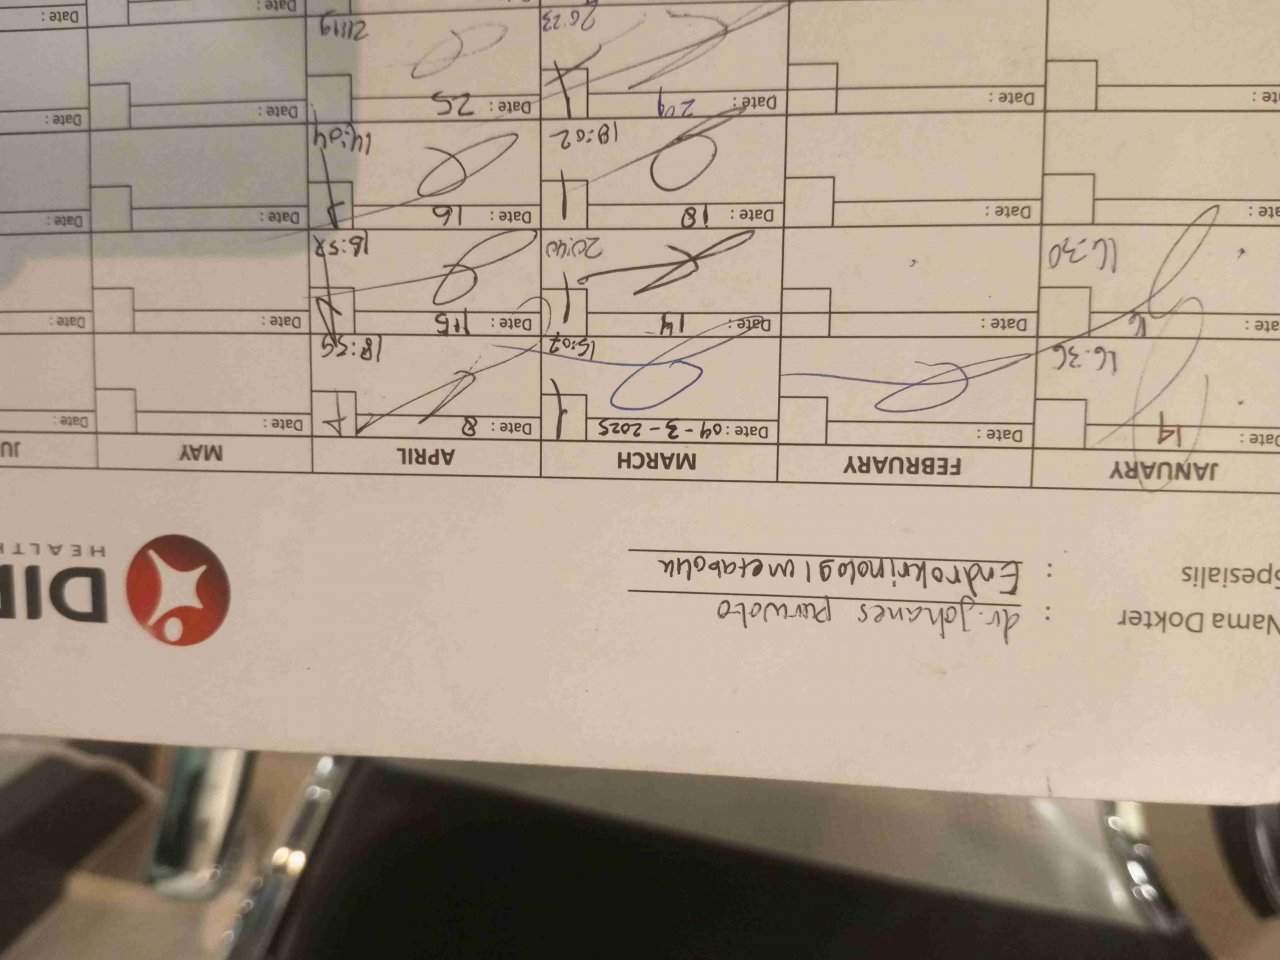 Nama Dokter : dr. Johanes purwoto
Spesialis : Endrokrinologi metabolik
HEALTH
JANUARY FEBRUARY MARCH APRIL MAY
Date : 14 Date : Date : 04-3-2025 Date : 8 Date : Date :
16.36 15:07 18:59
Date : 16 Date : Date : 14 Date : 15 Date : Date :
16.30 20:40 18:58
Date : Date : Date : 18 Date : 16 Date : Date :
18:02 14:04
Date : Date : Date : 29 Date : 25 Date : Date :
20:23 21:19
Date : Date :